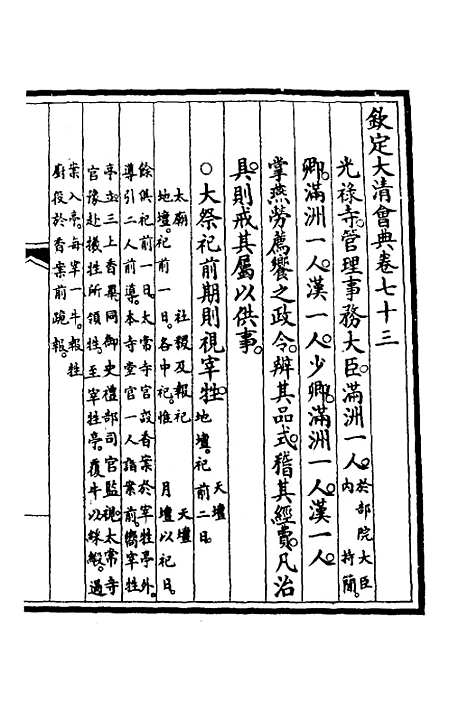 欽定大清會典卷七十三
光祿寺。管理事務大臣。滿洲一人。於部院大臣內特簡。
卿。滿洲一人。漢一人。少卿。滿洲一人。漢一人。
掌燕勞薦饗之政令。辨其品式。稽其經費。凡治
具。則戒其屬以供事。
○大祭祀前期則視宰牲。天壇地壇。祀前二日。
太廟社稷及報祀天壇
地壇。祀前一日。各中祀。惟月壇以祀日。
餘俱祀前一日。太常寺官設香案於宰牲亭外。
導引二人前導。本寺堂官一人詣案前。嚮宰牲
亭立。三上香。畢。同御史禮部司官監視。太常寺
官豫赴犧牲所領牲。至宰牲亭。覆牛以綵緞。過
案入亭。每宰一牛。報牲
廚役於香案前跪報。